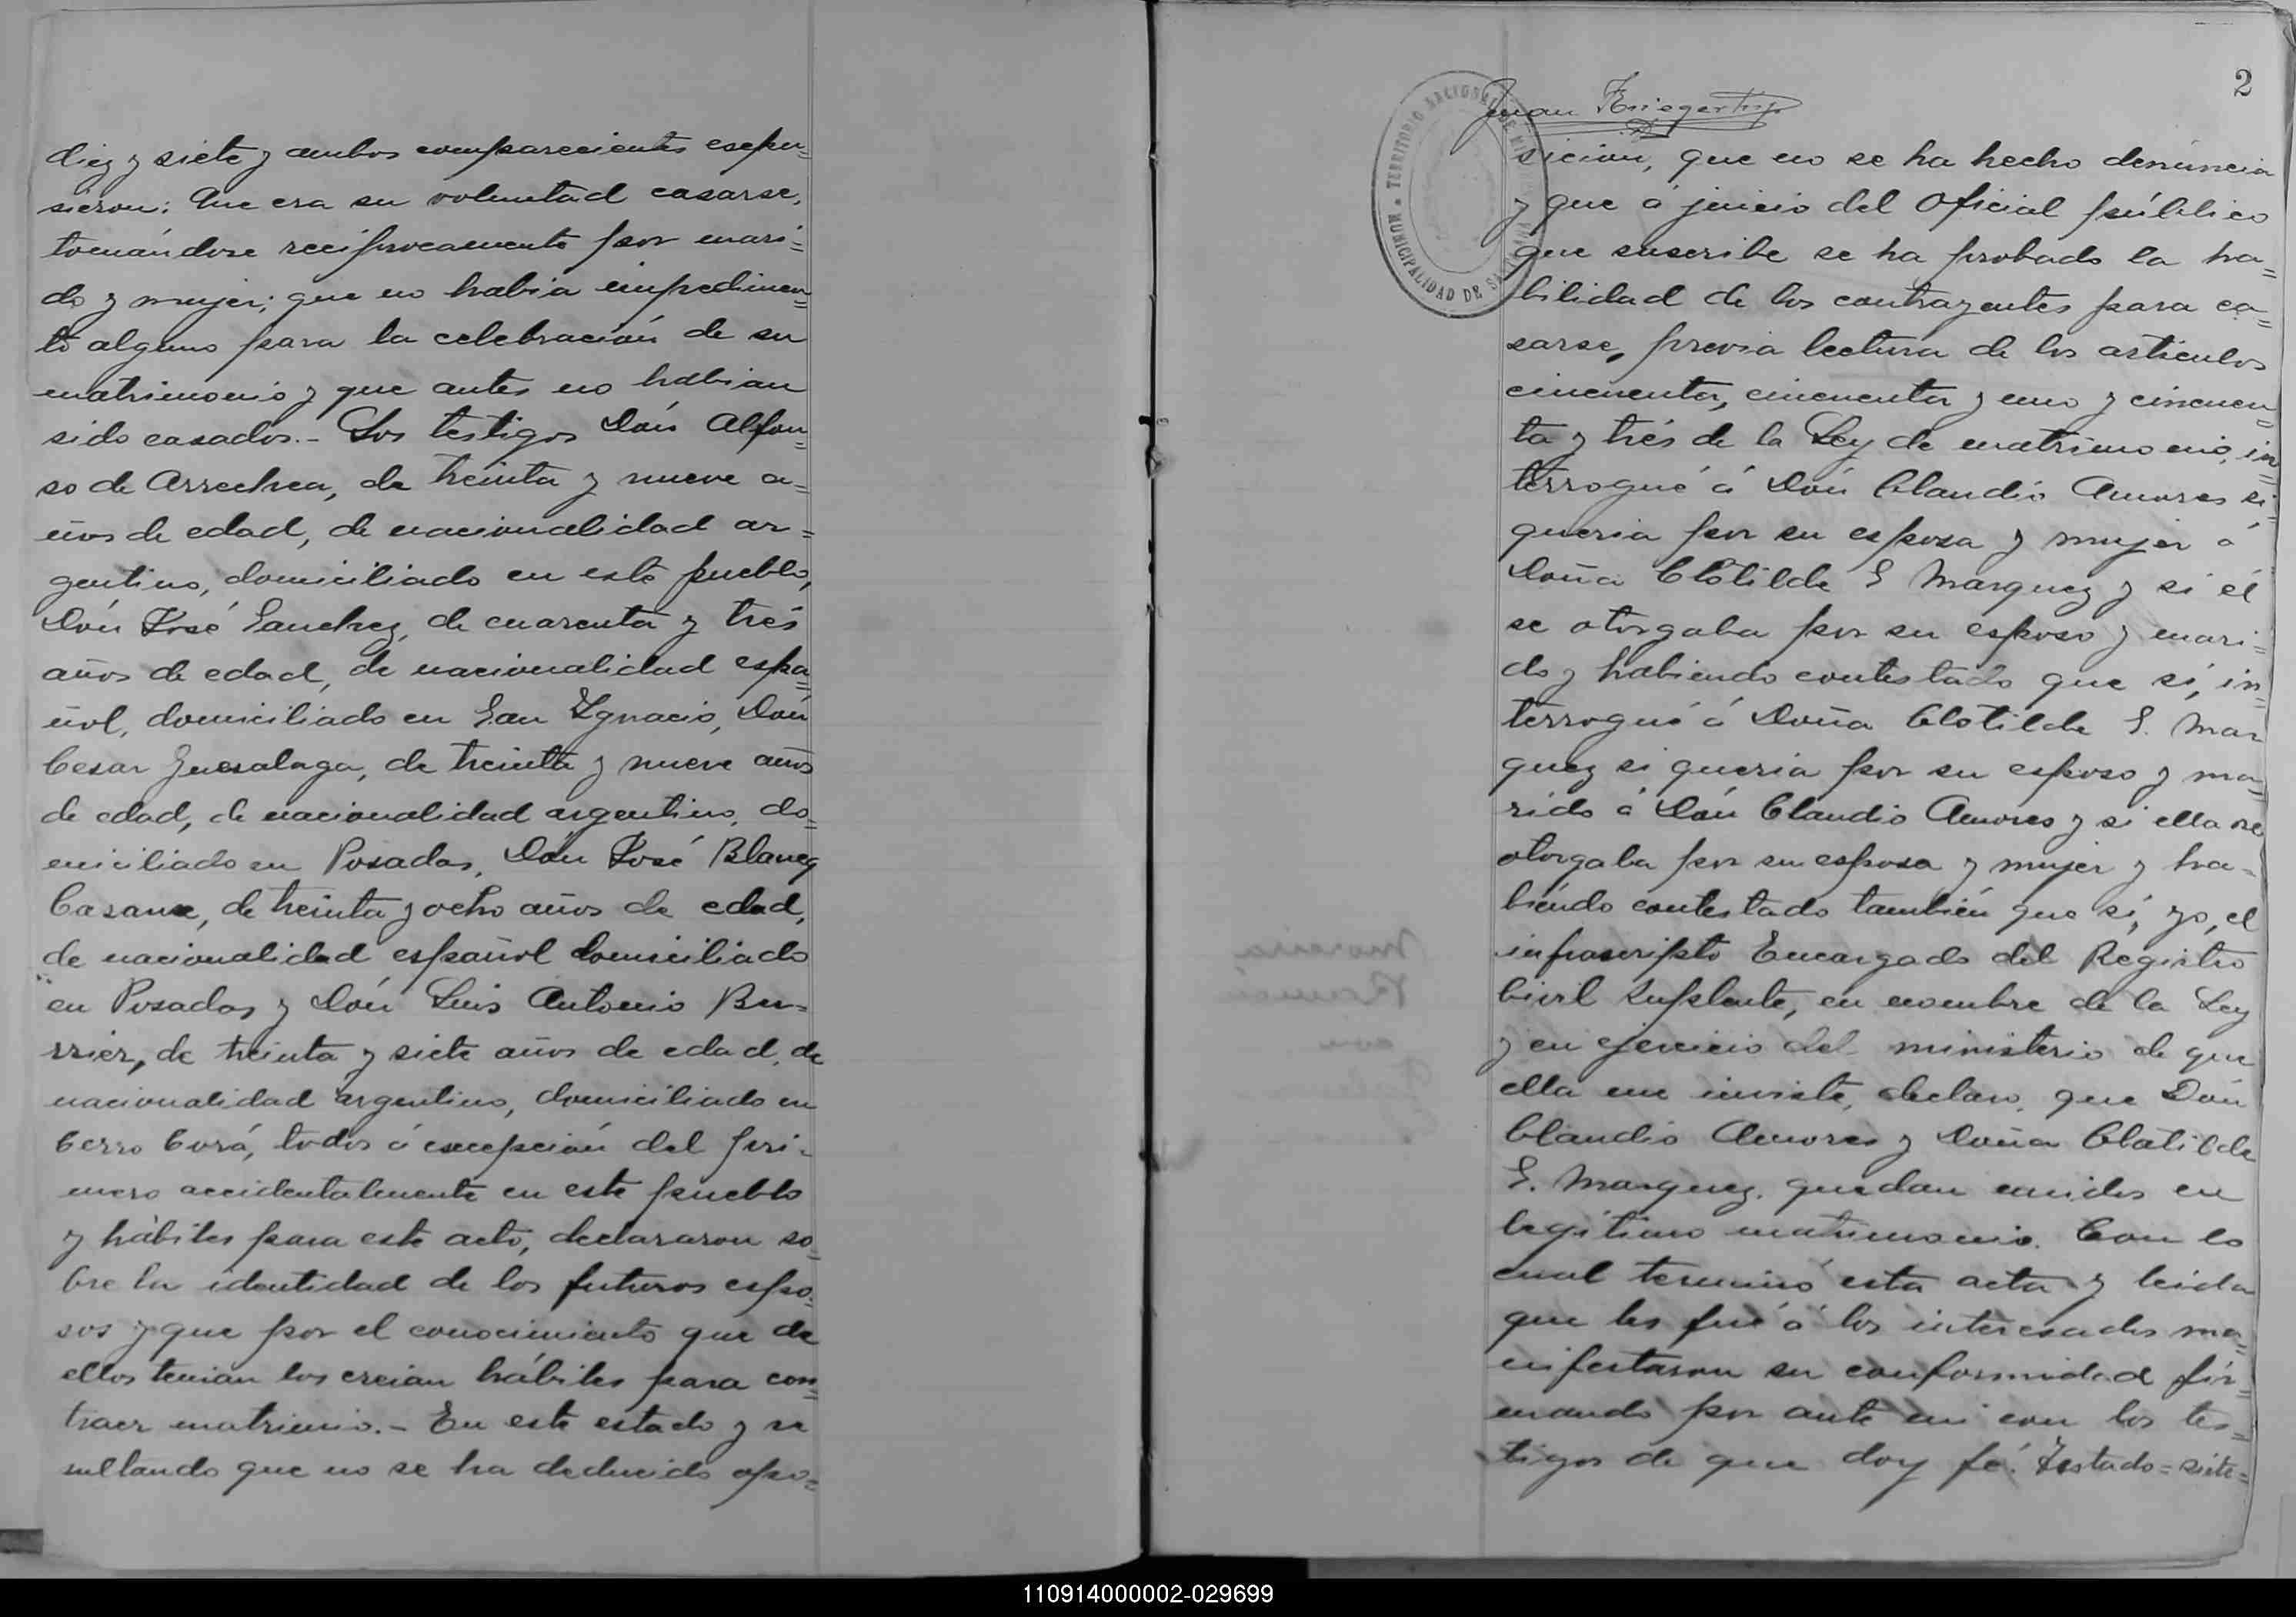 diez y siete y ambos comparecientes espu=
sieron: Que era su voluntad casarse,
tomándose recíprocamente por mari=
do y mujer; que no habia impedimen=
to alguno para la celebración de su
matrimonio y que antes no habian
sido casados.- Los testigos Dón Alfon=
so de Arrechea, de treinta y nueve a=
ños de edad, de nacionalidad ar=
gentino, domiciliado en este pueblo,
Dón José Sanchez, de cuarenta y trés
años de edad, de nacionalidad espa=
ñol, domiciliado en San Ygnacio, Dón
Cesar Guesalaga, de treinta y nueve años
de edad, de nacionalidad argentino, do=
miciliado en Posadas, Dón José Blaneg
Casane, de treinta y ocho años de edad,
de nacionalidad español domiciliado
en Posadas y Dón Luis Antonio Bu=
rrier, de treinta y siete años de edad, de
nacionalidad argentino, domiciliado en
Cerro Corá, todos á excepción del pri=
mero accidentalmente en este pueblo
y hábiles para este acto, declararon so=
bre la identidad de los futuros espo=
sos y que por el conocimiento que de
ellos tenian los creian hábiles para con=
traer matrimio.- En este estado y re
sultando que no se ha deducido opo=
2
Juan Krieger
TERRITORIO NACIONAL DE MISIONES
MUNICIPALIDAD DE SANTA ANA
sicion, que no se ha hecho denúncia
y que á juicio del Oficial público
que suscribe se ha probado la ha=
bilidad de los contrayentes para ca=
sarse, previa lectura de los artículos
cincuenta, cincuenta y uno y cincuen=
ta y trés de la Ley de matrimonio, in=
terrogué á Dón Claudio Amores si
queria por su esposa y mujer á
Doña Clotilde E Marquez y si él
se otorgaba por su esposo y mari=
do y habiendo contestado que sí, in=
terrogué á Doña Clotilde E. Mar
quez si queria por su esposo y ma=
rido á Dón Claudio Amores y si ella se
otorgaba por su esposa y mujer y ha=
biéndo contestado también que sí, yo, el
infrascripto Encargado del Registro
Civil Suplente, en nombre de la Ley
y en ejercicio del ministerio de que
ella me inviste, declaro, que Dón
Claudio Amores y Doña Clotilde
E. Marquez, quedan unidos en
legítimo matrimonio. Con lo
cual terminó esta acta y leida
que les fué á los interesados ma=
nifestaron su conformidad fir=
mando por ante mi con los tes=
tigos de que doy fé. Testado=siete=
110914000002-029699